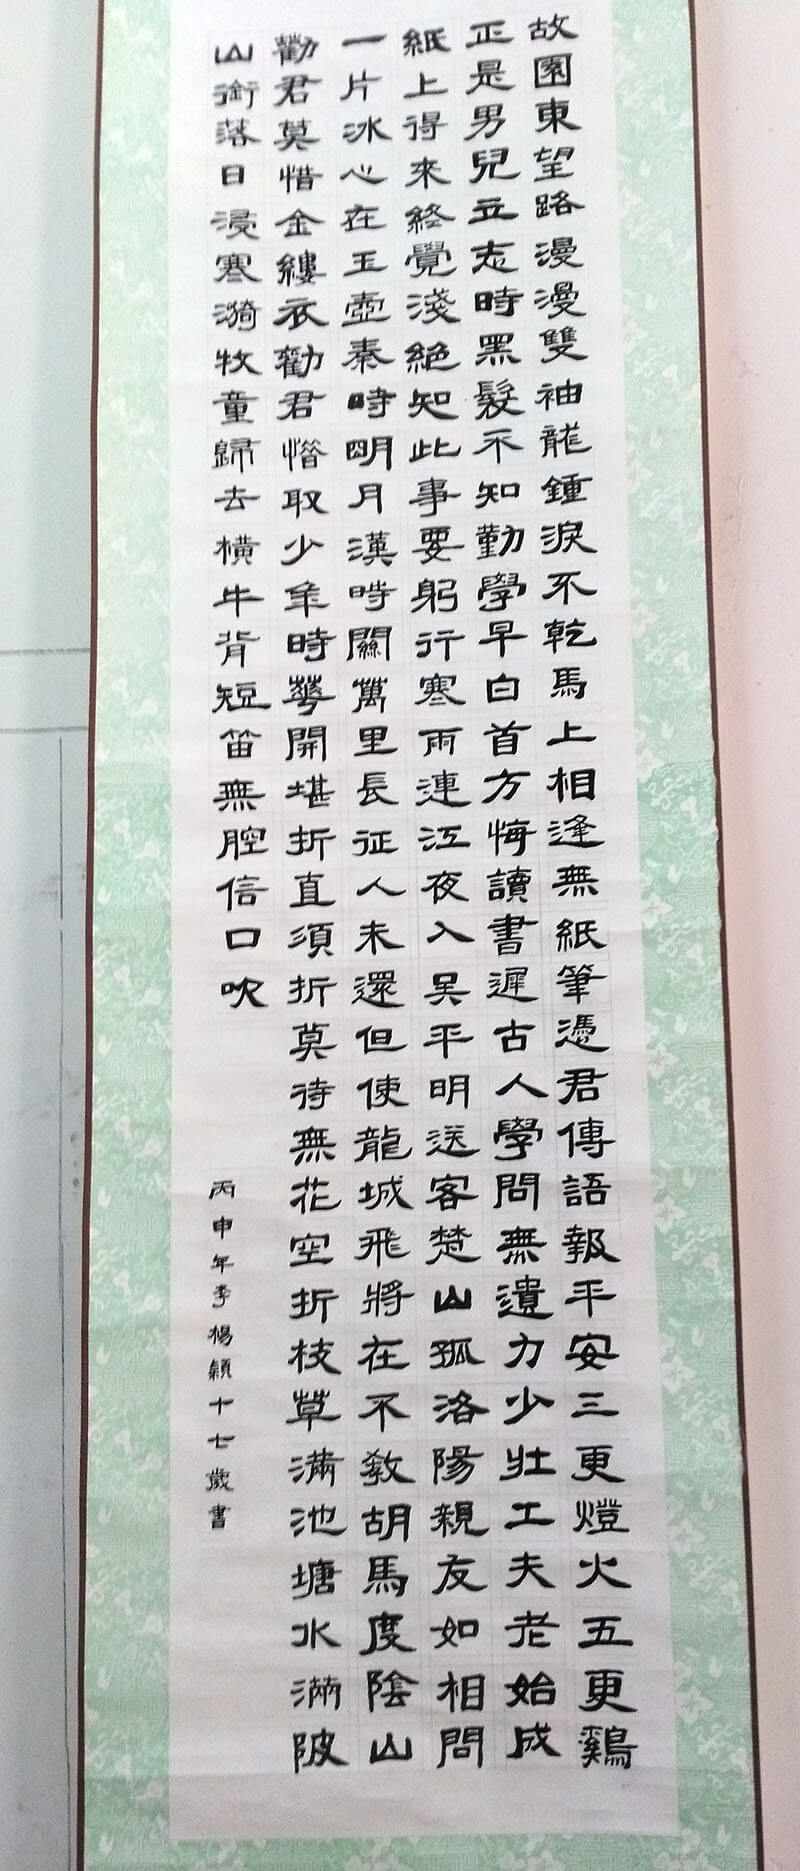 故園東望路漫漫雙袖龍鍾淚不乾馬上相逢無紙筆憑君傳語報平安三更燈火五更鷄
正是男兒立志時黑髮不知勤學早白首方悔讀書遲古人學問無遺力少壯工夫老始成
紙上得來終覺淺絕知此事要躬行寒雨連江夜入吳平明送客楚山孤洛陽親友如相問
一片冰心在玉壺秦時明月漢時關萬里長征人未還但使龍城飛將在不教胡馬度陰山
勸君莫惜金縷衣勸君惜取少年時華開堪折直須折莫待無花空折枝草滿池塘水滿陂
山銜落日浸寒漪牧童歸去橫牛背短笛無腔信口吹
丙申年李楊穎十七歲書